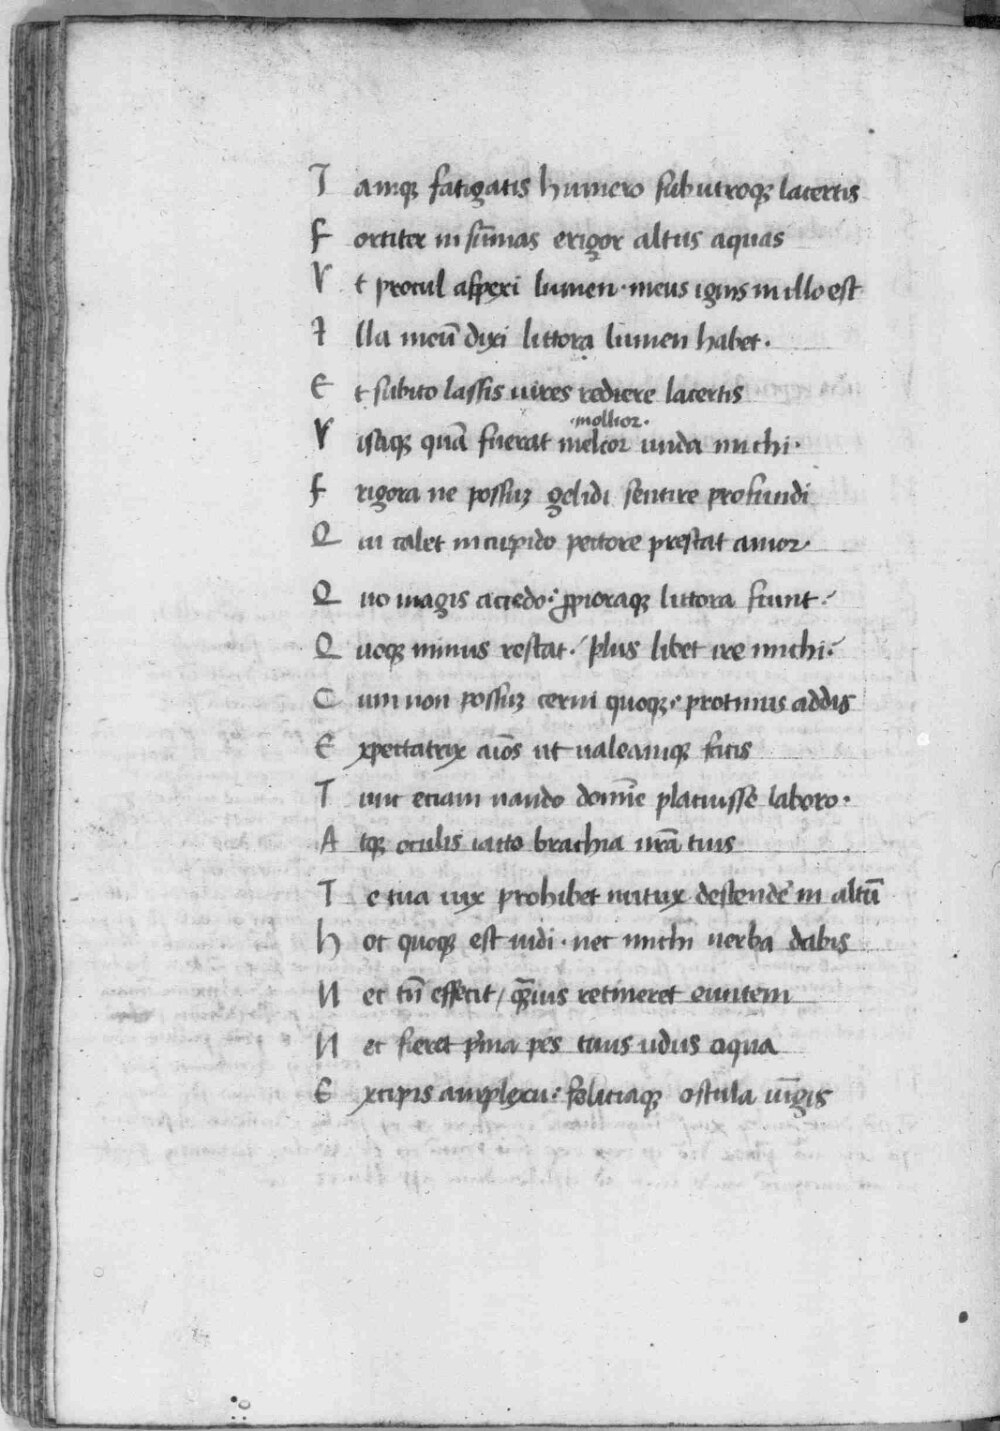 I amq; fatigatis humero sub utroq; lacertis
F ortiter in sūmas erigor altus aquas
V t procul aspexi lumen · meus ignis in illo est
I lla meū dixi littora lumen habet ·
E t subito lassis uires rediere lacertis
· mollior ·
V isaq; quā fuerat melior unda michi ·
F rigora ne possuȝ gelidi sentire profundi
Q ui calet in cupido pectore prestat amor ·
Q uo magis accedo · ꝓpioraq; littora fiunt ·
Q uoq; minus restat · plus libet ire michi ·
C um non possuȝ cerni quoq; · protinus addis
E xpectatrix aīos ut ualeamq; facis
T unc etiam nando domīe placuisse laboro ·
A tq; oculis iacto brachia nr̄a tuis
T e tua uix prohibet nutrix descende in altū
h oc quoq; est uidi · nec michi uerba dabis
N ec tn̄ effecit / qȝuis retineret euntem
N ec fieret pͥma pes tuus udus aqua
E xcipis amplexu · feliciaq; oscula iūgis